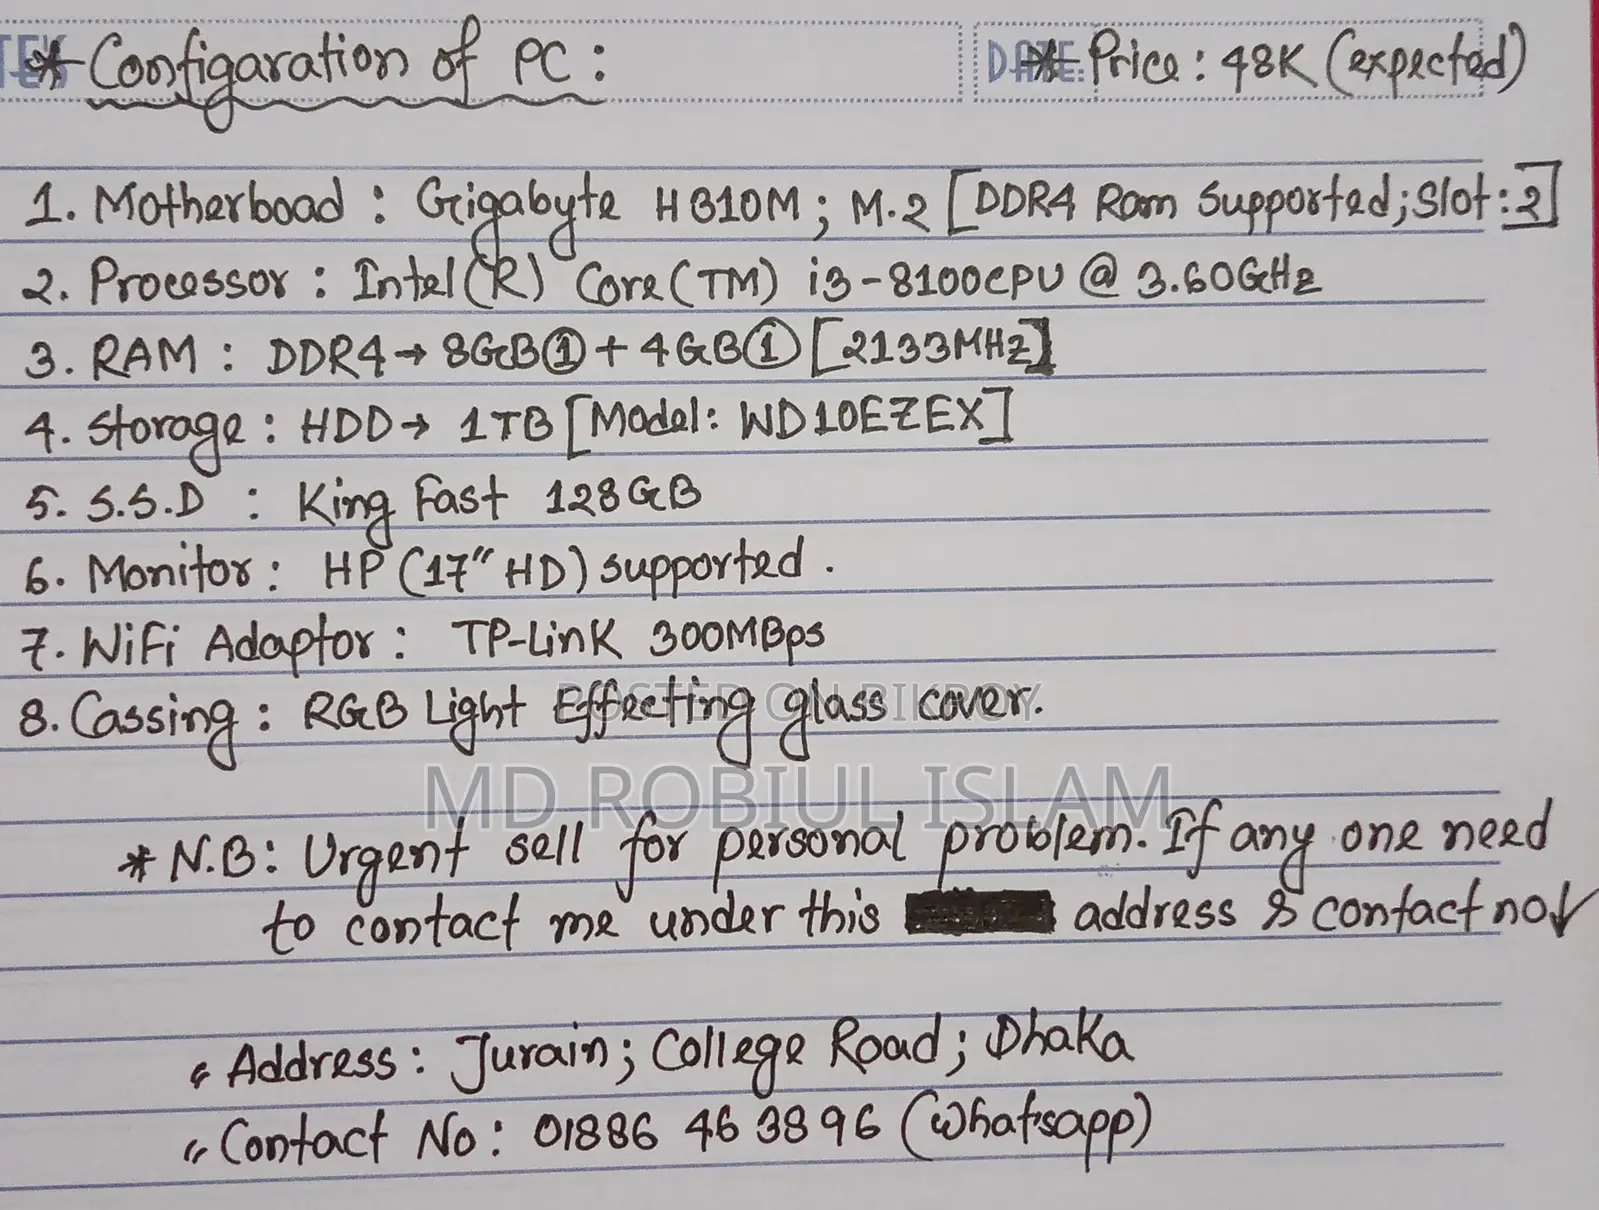 * Configaration of PC :
DATE: * Price : 48K (expected)
1. Motherboad : Gigabyte H310M ; M.2 [DDR4 Ram Supported; Slot : 2]
2. Processor : Intel(R) Core(TM) i3-8100CPU @ 3.60GHz
3. RAM : DDR4→ 8GB① + 4GB① [2133MHz]
4. Storage : HDD→ 1TB [Model: WD10EZEX]
5. S.S.D : King Fast 128GB
6. Monitor : HP (17" HD) supported .
7. WiFi Adaptor : TP-Link 300MBps
8. Cassing : RGB Light Effecting glass cover.
POSTED ON BIKROY
MD ROBIUL ISLAM
* N.B : Urgent sell for personal problem. If any one need
to contact me under this address & contact no↓
Address : Jurain; College Road; Dhaka
Contact No : 01886 463896 (Whatsapp)